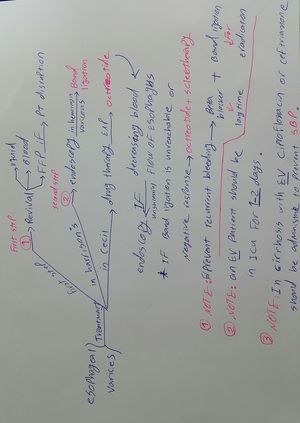 esophageal varices
Treatment
First step
① Revival → Fluid
→ Blood
→ FFP IF → PT disruption
second step
② in harrison's → endoscopy
in Cecil → drug therapy → octreotide
variceal Band ligation
endoscopy IF decreasing blood
flow of Esophagus
* IF Band ligation is unreachable or
negative response → octreotide + sclerotherapy
① NOTE: prevent recurrent bleeding → Beta blocker + Band ligation For eradication
② NOTE: an EV patient should be
in ICU For 1-2 days.
③ NOTE: In cirrhosis with EV Ciprofloxacin or ceftriaxone
should be prevent SBP